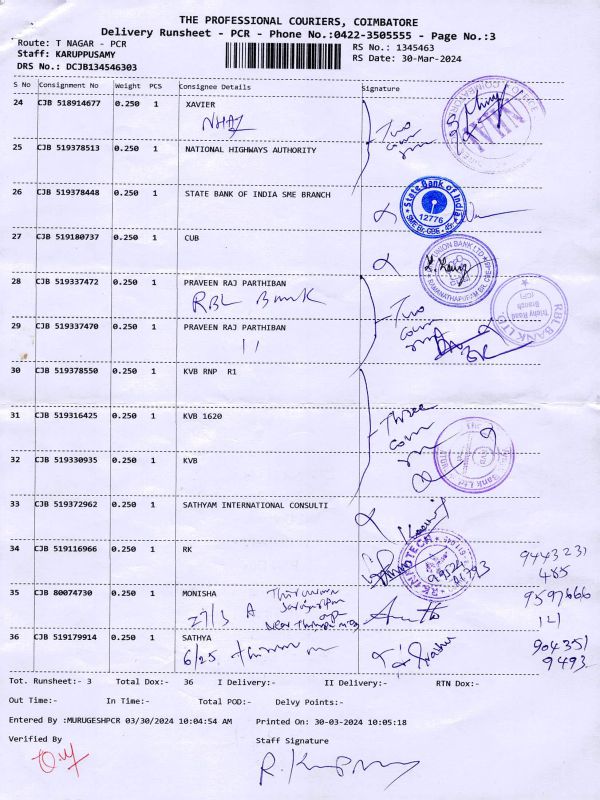 THE PROFESSIONAL COURIERS, COIMBATORE
Delivery Runsheet - PCR - Phone No.:0422-3505555 - Page No.:3
Route: T NAGAR - PCR
RS No.: 1345463
Staff: KARUPPUSAMY
RS Date: 30-Mar-2024
DRS No.: DCJB134546303
S No Consignment No Weight PCS Consignee Details Signature
24 CJB 518914677 0.250 1 XAVIER
NHAI
Two
25 CJB 519378513 0.250 1 NATIONAL HIGHWAYS AUTHORITY
26 CJB 519378448 0.250 1 STATE BANK OF INDIA SME BRANCH
State Bank of India
12776
27 CJB 519180737 0.250 1 CUB
UNION BANK LTD
RAMANATHAPURAM BR, CBE-45
28 CJB 519337472 0.250 1 PRAVEEN RAJ PARTHIBAN
RBL Bank
Two
RBL BANK LTD
Trichy Road
Branch
29 CJB 519337470 0.250 1 PRAVEEN RAJ PARTHIBAN
11
30 CJB 519378550 0.250 1 KVB RNP R1
31 CJB 519316425 0.250 1 KVB 1620
Three
32 CJB 519330935 0.250 1 KVB
33 CJB 519372962 0.250 1 SATHYAM INTERNATIONAL CONSULTI
34 CJB 519116966 0.250 1 RK
RK INFOTECH
9443231
485
35 CJB 80074730 0.250 1 MONISHA
27/3 A
9597666
121
36 CJB 519179914 0.250 1 SATHYA
6/25
904351
9493
Tot. Runsheet:- 3 Total Dox:- 36 I Delivery:- II Delivery:- RTN Dox:-
Out Time:- In Time:- Total POD:- Delvy Points:-
Entered By :MURUGESHPCR 03/30/2024 10:04:54 AM Printed On: 30-03-2024 10:05:18
Verified By Staff Signature